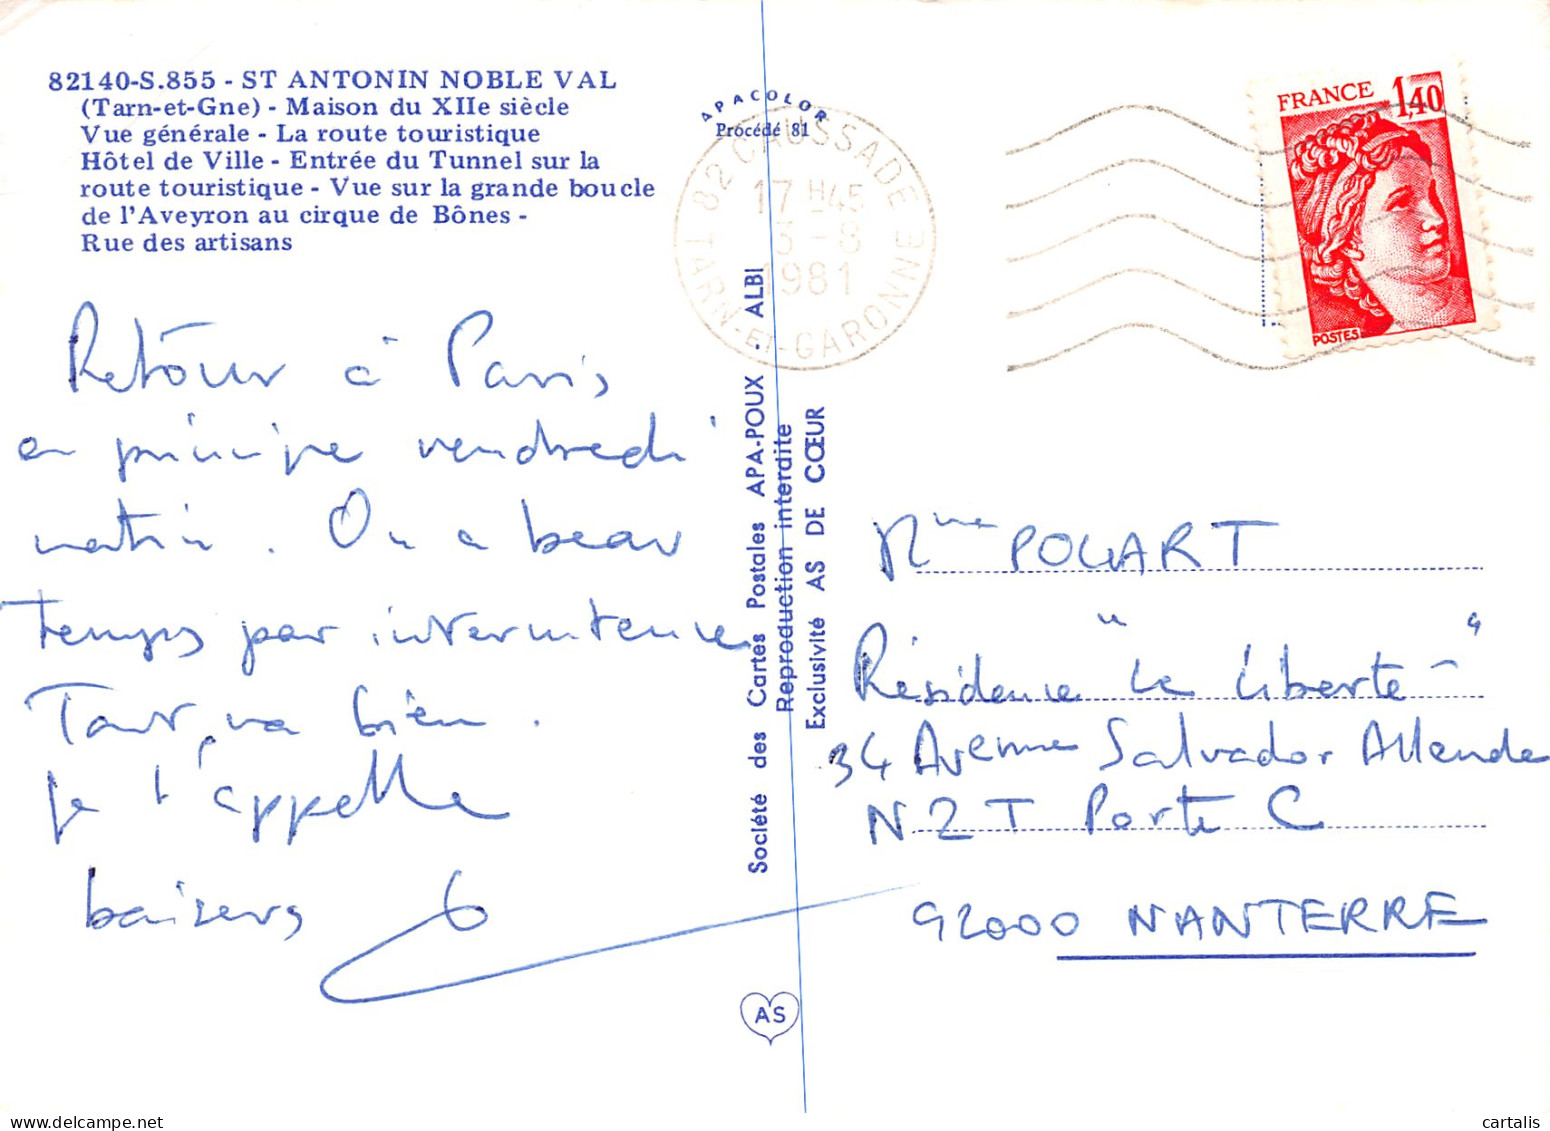 82140-S.855 - ST ANTONIN NOBLE VAL
(Tarn-et-Gne) - Maison du XIIe siècle
Vue générale - La route touristique
Hôtel de Ville - Entrée du Tunnel sur la
route touristique - Vue sur la grande boucle
de l'Aveyron au cirque de Bônes -
Rue des artisans
APACOLOR
Procédé 81
82 CAUSSADE
17 H45
3-8
1981
TARN-ET-GARONNE
FRANCE 1,40
POSTES
Retour à Paris
en principe vendredi
matin. On a beau
temps par intermittence
Tout va bien.
je t'appelle
baisers
Société des Cartes Postales APA-POUX - ALBI
Reproduction interdite
Exclusivité AS DE CŒUR
Mme POUART
Résidence "Le Liberté"
34 Avenue Salvador Allende
N2T Porte C
92000 NANTERRE
AS
cartalis